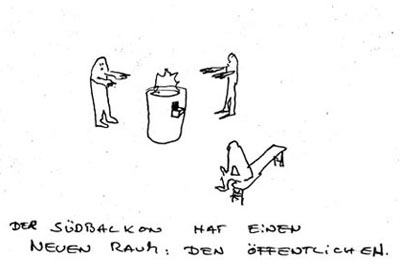 DER SÜDBALKON HAT EINEN
NEUEN RAUM: DEN ÖFFENTLICHEN.